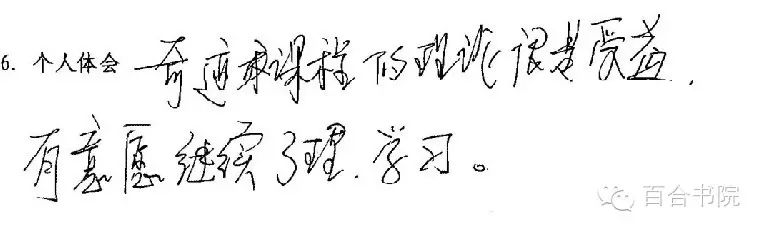 6. 个人体会 奇迹课程的理论很是受益,
有意愿继续了理.学习。
百合书院